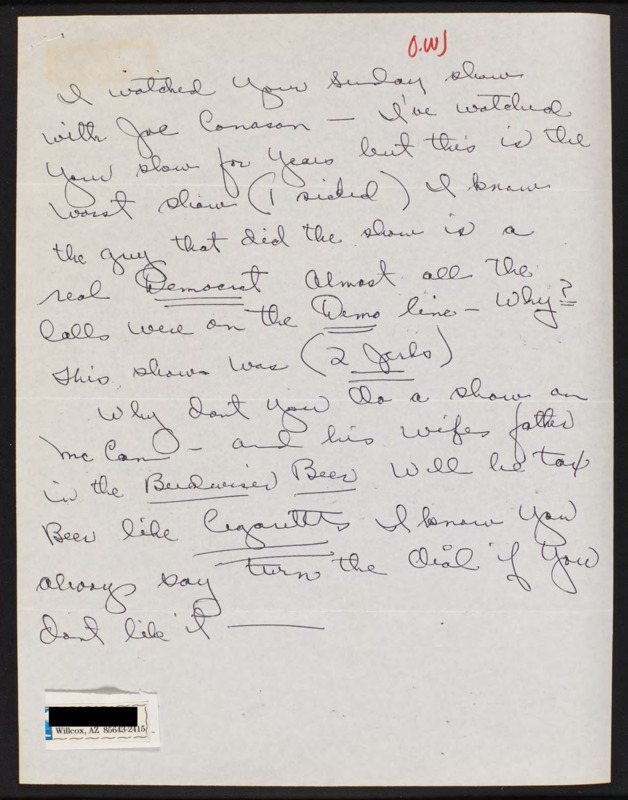 O.W)
I watched your Sunday show
with Joe Conason — I've watched
your show for years but this is the
worst show (1 sided) I know
the guy that did the show is a
real Democrat Almost all the
calls were on the Demo line — Why?
This show was (2 Jerks)
Why dont you do a show on
Mc Cain — and his wifes father
in the Budwiser Beer Will he tax
Beer like Cigaretts I know you
always say turn the dial if you
dont like it —
Willcox, AZ 85643-2415